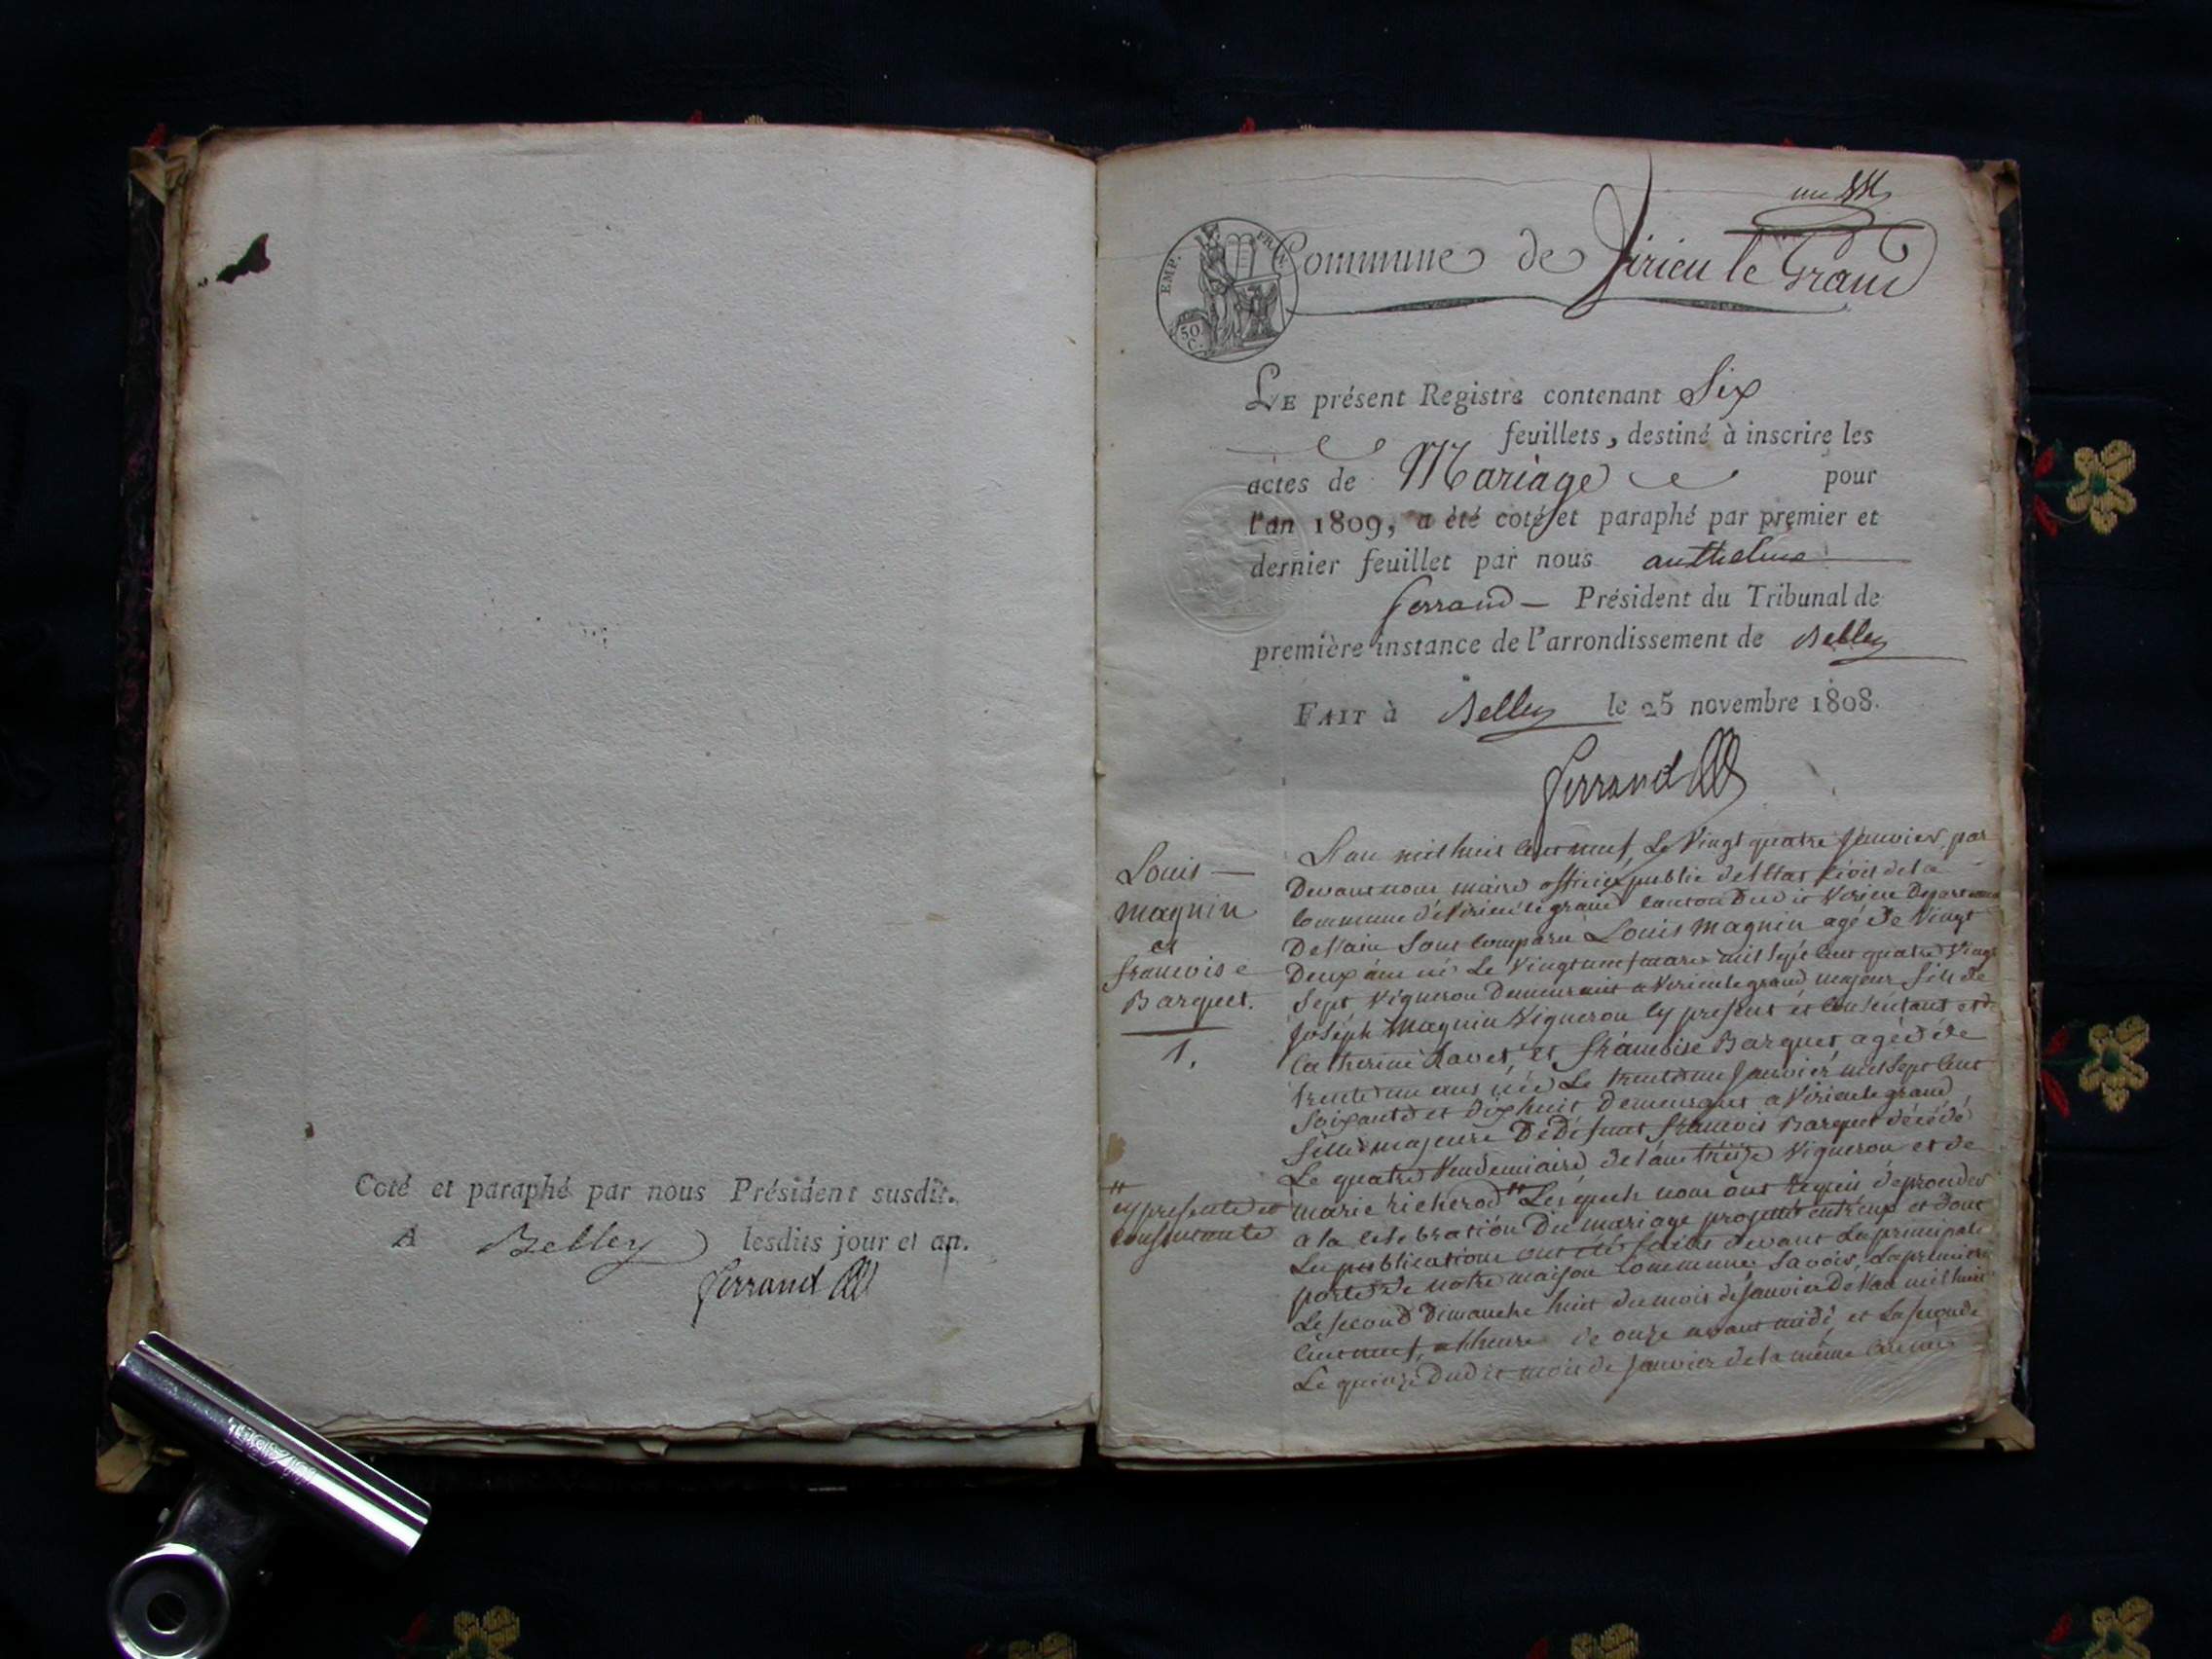 Coté et paraphé par nous Président susdit.
A Belley lesdits jour et an.
Ferrand
Commune de Virieu le Grand
EMP. FRAN.
50 C.
LE présent Registre contenant Six
feuillets, destiné à inscrire les
actes de Mariage pour
l'an 1809, a été coté et paraphé par premier et
dernier feuillet par nous anthelme
ferrand — Président du Tribunal de
première instance de l'arrondissement de Belley
FAIT à Belley le 25 novembre 1808.
Ferrand
Louis —
magnin
et
francoise
Barquet.
1.
L'an mil huit cent neuf, Le Vingt quatre Janvier, par
Devant nous maire officier public de l'Etat Civil de la
Commune de Virieu le grand canton Dudit Virieu Departement
De l'ain Sont Comparu Louis Magnin agé de Vingt
Deux ans né Le Vingt un mars mil Sept Cent quatre Vingt
Sept Vigneron Demeurant a Virieu le grand majeur fils de
Joseph Magnin Vigneron Cy present et Consentant et de
Catherine Ravet, et francoise Barquet agée de
trente un ans née Le trente un Janvier mil Sept Cent
Soixante et Dix huit Demeurant a Virieu le grand
fille majeure De Defunt francois Barquet décédé
Le quatre Vendemiaire de l'an treize Vigneron et de
marie richerod " Lesquels nous ont requis de proceder
" cy presente et
consentante
a la Celebration Du mariage projetté entr'eux et dont
Les publications ont été faites devant La principale
porte de notre maison Commune, Savoir, La premiere
Le second Dimanche huit du mois de Janvier De l'an mil huit
Cent neuf, a l'heure de onze avant midi, et La seconde
Le quinze Dudit mois de Janvier de la même année